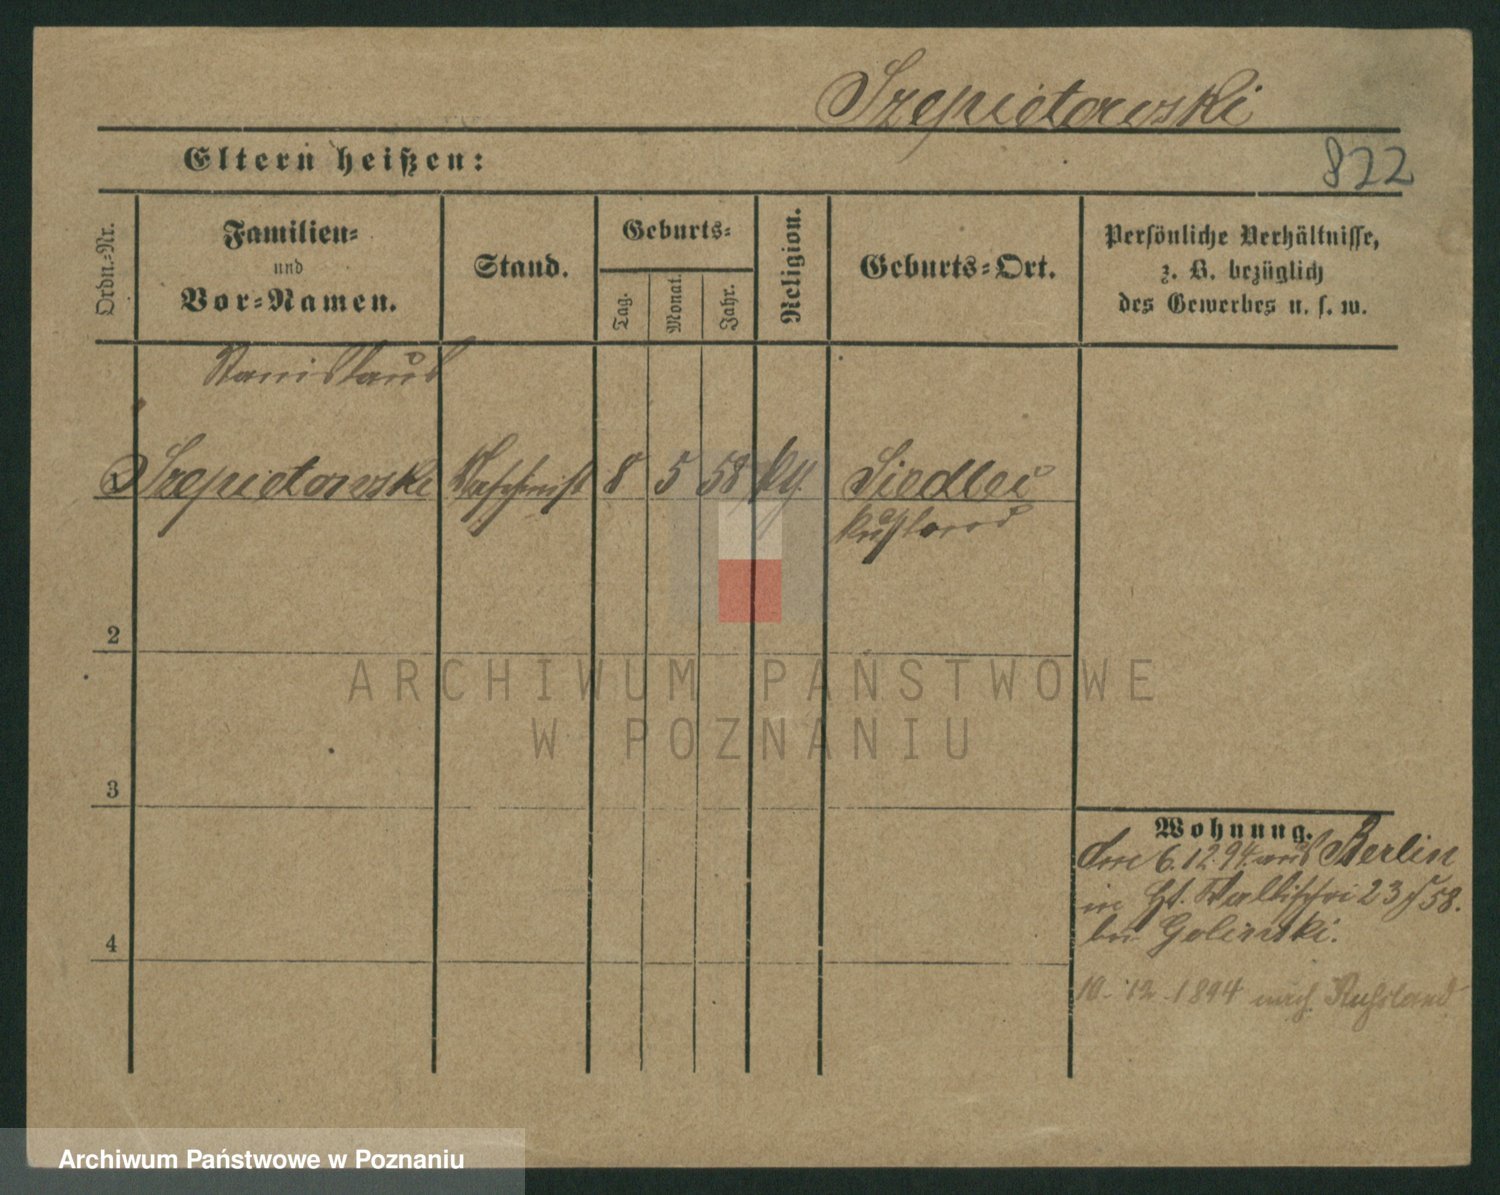 Szepietowski
Eltern heißen:
822
Ordn.-Nr.
Familien-
und
Vor-Namen.
Stand.
Geburts-
Tag.
Monat.
Jahr.
Religion.
Geburts-Ort.
Persönliche Verhältnisse,
z. B. bezüglich
des Gewerbes u. s. w.
Stanislaus
1 Szepietowski 8 5 58 Siedlei
Rußland
2
3
4
Wohnung.
6.12.94. aus Berlin
in Wallischei 23 58.
bei Golinski.
10.12.1894 nach Russland
ARCHIWUM PAŃSTWOWE
W POZNANIU
Archiwum Państwowe w Poznaniu